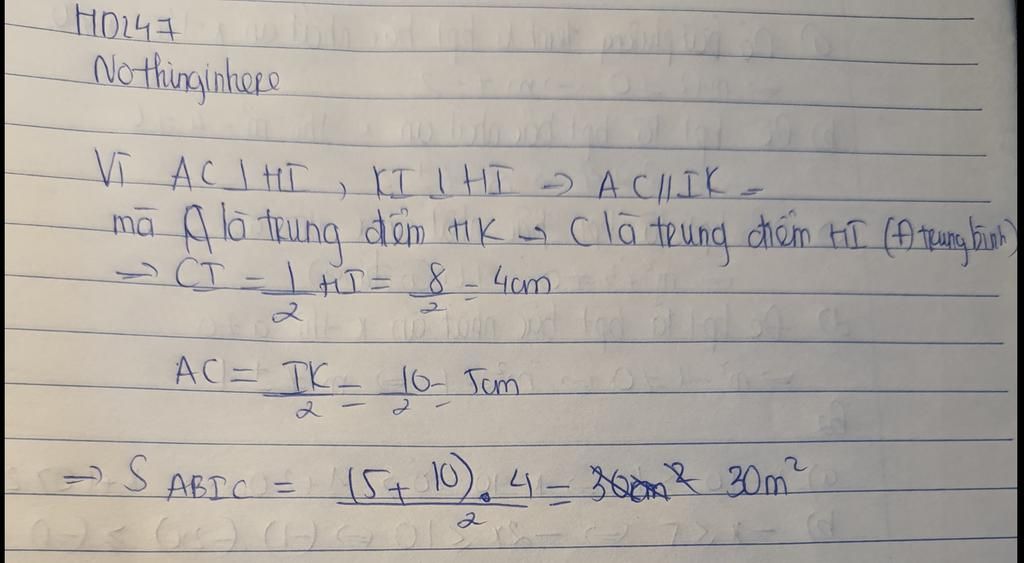 HD247
Nothinginhere
Vì AC ⊥ HI, KI ⊥ HI → AC // IK -
mà A là trung điểm HK → C là trung điểm HI (t) trung bình)
→ CI = 1/2 HI = 8/2 = 4cm
AC = IK/2 = 10/2 = 5cm
→ S ABIC = (5+10).4/2 = 30m²